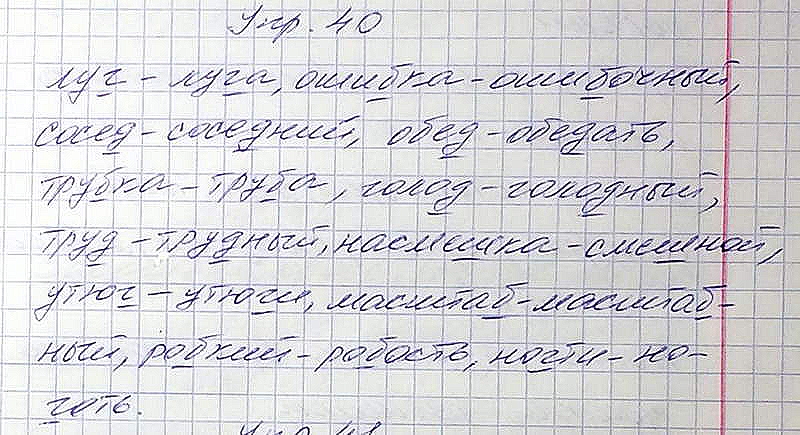 Упр. 40
луг – луга, ошибка – ошибочный,
сосед – соседний, обед – обедать,
трубка – труба, голод – голодный,
труд – трудный, насмешка – смешной,
утюг – утюги, масштаб – масштаб-
ный, робкий – робость, ногти – но-
готь.
Упр. 41